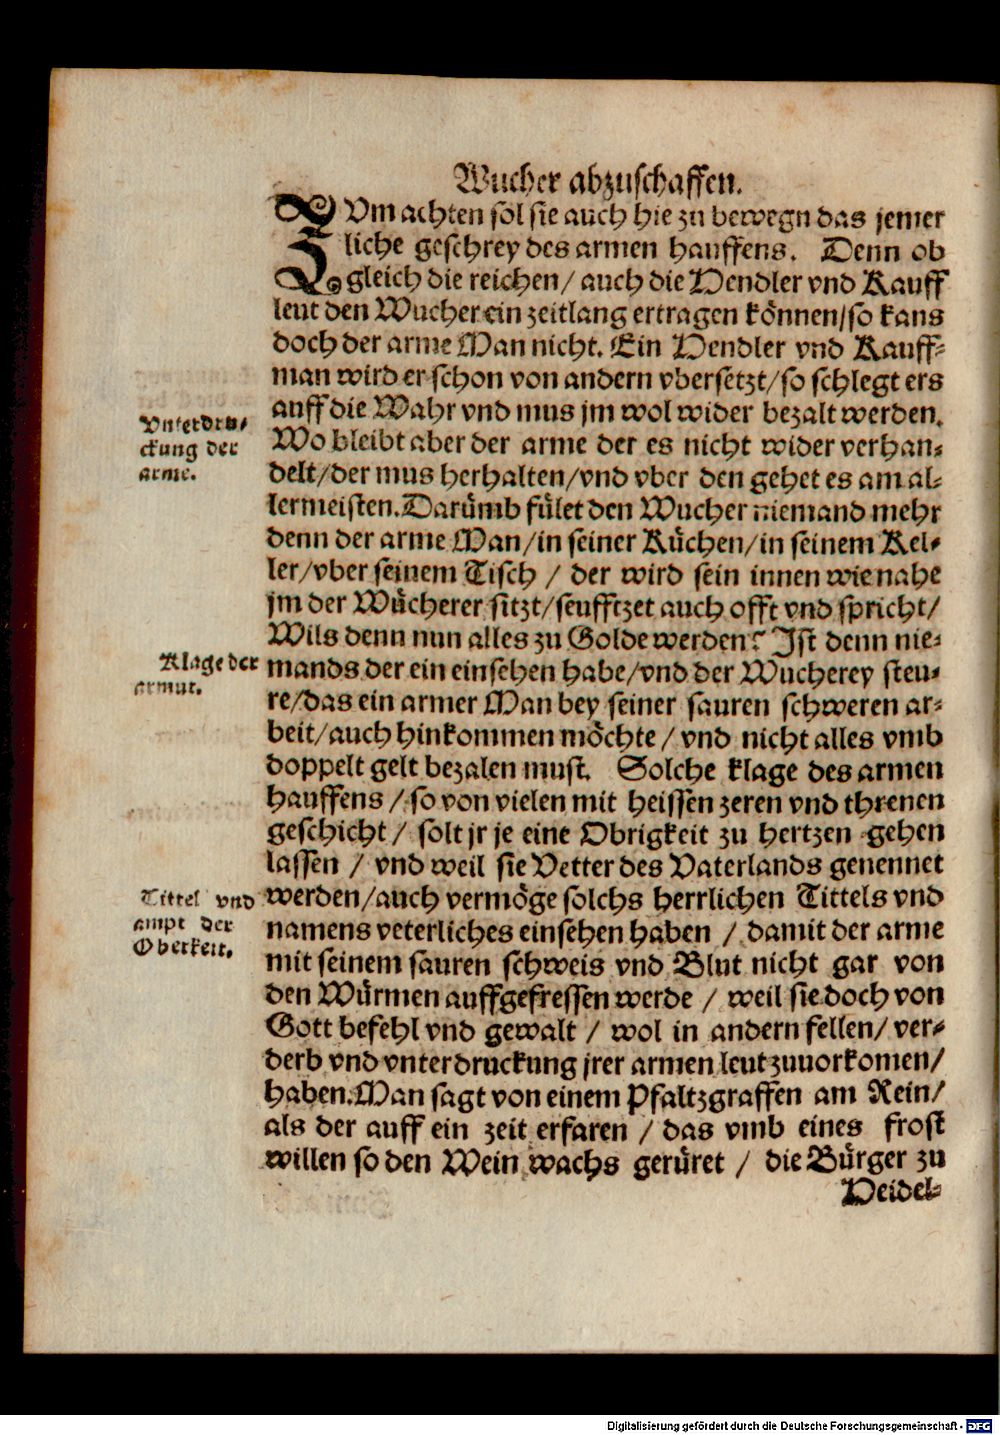 Wucher abzuschaffen.
ZVm achten sol sie auch hie zu bewegn das jemer
liche geschrey des armen hauffens. Denn ob
gleich die reichen/ auch die Hendler vnd Kauff
leut den Wucher ein zeitlang ertragen können/so kans
doch der arme Man nicht. Ein Hendler vnd Kauff-
man wird er schon von andern vbersetzt/so schlegt ers
auff die Wahr vnd mus jm wol wider bezalt werden.
Vnterdru-
ckung der
arme.
Wo bleibt aber der arme der es nicht wider verhan-
delt/der mus herhalten/vnd vber den gehet es am al-
lermeisten. Darümb fület den Wucher niemand mehr
denn der arme Man/in seiner Küchen/in seinem Kel-
ler/vber seinem Tisch / der wird sein innen wie nahe
jm der Wücherer sitzt/seufftzet auch offt vnd spricht/
Wils denn nun alles zu Golde werden? Ist denn nie-
Klage der
armut.
mands der ein einsehen habe/vnd der Wucherey steu-
re/das ein armer Man bey seiner sauren schweren ar-
beit/auch hinkommen möchte / vnd nicht alles vmb
doppelt gelt bezalen must. Solche klage des armen
hauffens / so von vielen mit heissen zeren vnd threnen
geschicht / solt jr je eine Obrigkeit zu hertzen gehen
lassen / vnd weil sie Vetter des Vaterlands genennet
Tittel vnd
ampt der
Oberkeit.
werden/auch vermöge solchs herrlichen Tittels vnd
namens veterliches einsehen haben / damit der arme
mit seinem sauren schweis vnd Blut nicht gar von
den Würmen auffgefressen werde / weil sie doch von
Gott befehl vnd gewalt / wol in andern fellen/ ver-
derb vnd vnterdruckung jrer armen leut zuuorkomen/
haben. Man sagt von einem Pfaltzgraffen am Rein/
als der auff ein zeit erfaren / das vmb eines frost
willen so den Wein wachs gerüret / die Bürger zu
Heidel-
Digitalisierung gefördert durch die Deutsche Forschungsgemeinschaft - DFG